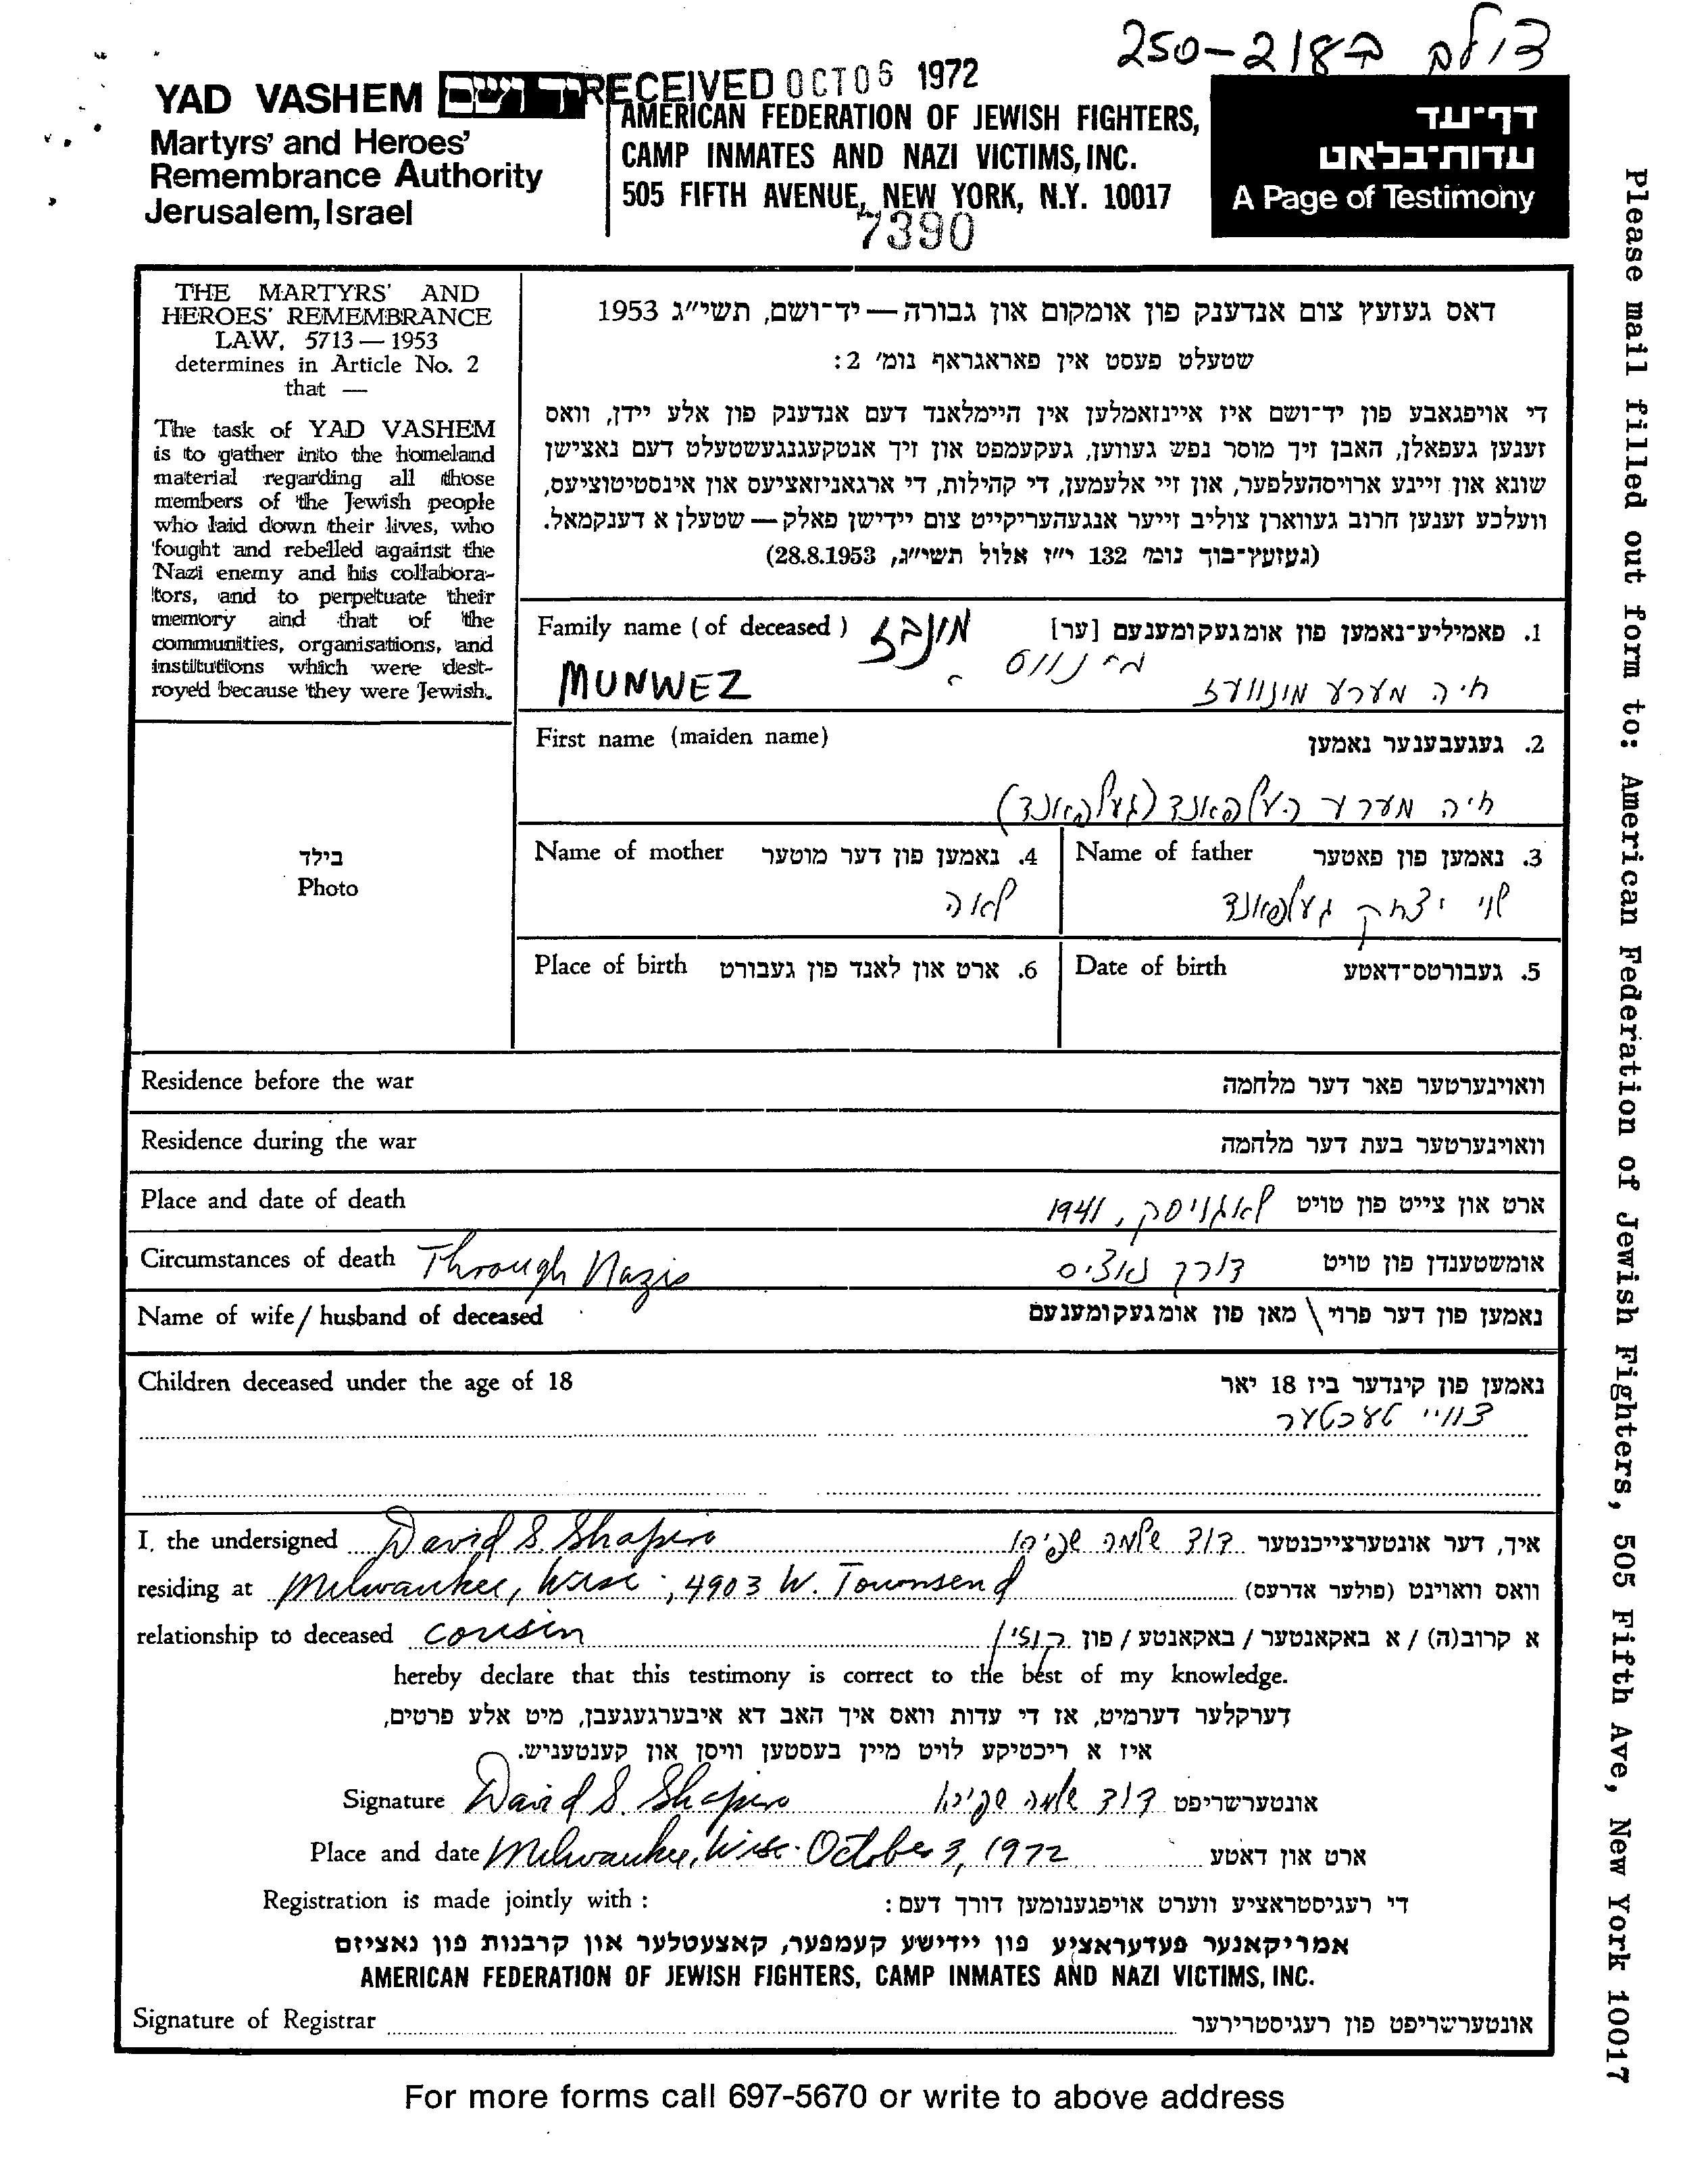 250-2187 דולב
YAD VASHEM יד ושם
Martyrs' and Heroes'
Remembrance Authority
Jerusalem, Israel
RECEIVED OCT 06 1972
AMERICAN FEDERATION OF JEWISH FIGHTERS,
CAMP INMATES AND NAZI VICTIMS, INC.
505 FIFTH AVENUE, NEW YORK, N.Y. 10017
7390
דף־עד
עדות־בלאט
A Page of Testimony
Please mail filled out form to: American Federation of Jewish Fighters, 505 Fifth Ave, New York 10017
THE MARTYRS' AND
HEROES' REMEMBRANCE
LAW, 5713 — 1953
determines in Article No. 2
that —
The task of YAD VASHEM
is to gather into the homeland
material regarding all those
members of the Jewish people
who laid down their lives, who
fought and rebelled against the
Nazi enemy and his collabora-
tors, and to perpetuate their
memory and that of the
communities, organisations, and
institutions which were dest-
royed because they were Jewish.
דאס געזעץ צום אנדענק פון אומקום און גבורה — יד־ושם, תשי"ג 1953
שטעלט פעסט אין פאראגראף נומ' 2:
די אויפגאבע פון יד־ושם איז איינזאמלען אין היימלאנד דעם אנדענק פון אלע יידן, וואס
זענען געפאלן, האבן זיך מוסר נפש געווען, געקעמפט און זיך אנטקעגנגעשטעלט דעם נאצישן
שונא און זיינע ארויסהעלפער, און זיי אלעמען, די קהילות, די ארגאניזאציעס און אינסטיטוציעס,
וועלכע זענען חרוב געווארן צוליב זייער אנגעהעריקייט צום יידישן פאלק — שטעלן א דענקמאל.
(געזעץ־בוך נומ' 132 י"ז אלול תשי"ג, 28.8.1953)
Family name (of deceased) מונבז 1. פאמיליע־נאמען פון אומגעקומענעם [ער]
MUNWEZ חיה מערע מינוועז
First name (maiden name) 2. געגעבענער נאמען
חיה מערע העלפאנד (געלפאנד)
בילד
Photo
Name of mother 4. נאמען פון דער מוטער
לאה
Name of father 3. נאמען פון פאטער
לוי יצחק געלפאנד
Place of birth 6. ארט און לאנד פון געבורט
Date of birth 5. געבורטס־דאטע
Residence before the war וואוינערטער פאר דער מלחמה
Residence during the war וואוינערטער בעת דער מלחמה
Place and date of death ארט און צייט פון טויט לאגויסק, 1941
Circumstances of death Through Nazis אומשטענדן פון טויט דורך נאציס
Name of wife / husband of deceased נאמען פון דער פרוי \ מאן פון אומגעקומענעם
Children deceased under the age of 18 נאמען פון קינדער ביז 18 יאר
צוויי טעכטער
I, the undersigned David S. Shapiro איך, דער אונטערצייכנטער דוד שלמה שפירא
residing at Milwaukee, Wisc., 4903 W. Townsend וואס וואוינט (פולער אדרעס)
relationship to deceased cousin א קרוב(ה) / א באקאנטער / באקאנטע / פון קוזין
hereby declare that this testimony is correct to the best of my knowledge.
דערקלער דערמיט, אז די עדות וואס איך האב דא איבערגעגעבן, מיט אלע פרטים,
איז א ריכטיקע לויט מיין בעסטען וויסן און קענטעניש.
Signature David S. Shapiro אונטערשריפט דוד שלמה שפירא
Place and date Milwaukee, Wisc. October 3, 1972 ארט און דאטע
Registration is made jointly with : די רעגיסטראציע ווערט אויפגענומען דורך דעם:
אמריקאנער פעדעראציע פון יידישע קעמפער, קאצעטלער און קרבנות פון נאציזם
AMERICAN FEDERATION OF JEWISH FIGHTERS, CAMP INMATES AND NAZI VICTIMS, INC.
Signature of Registrar אונטערשריפט פון רעגיסטרירער
For more forms call 697-5670 or write to above address